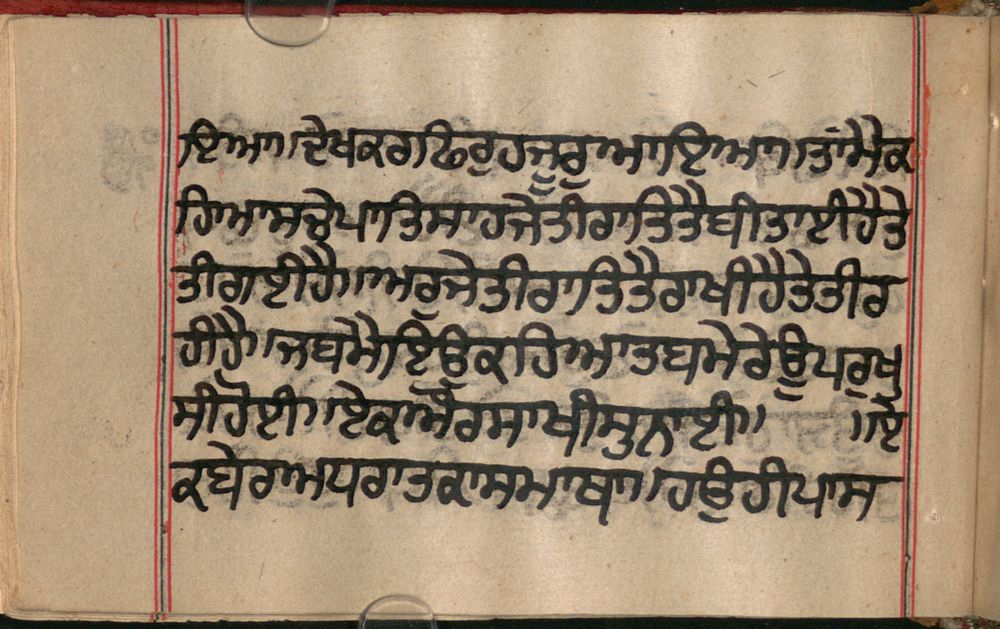 ਇਆ॥ਦੇਖਕਰਫਿਰੁਹਜੂਰੁਆਇਆ॥ਤਾਂਮੈਕ
ਹਿਆਸਚੇਪਾਤਿਸਾਹਜੇਤੀਰਾਤਿਤੈਬੀਤਾਈਹੈਤੇ
ਤੀਗਈਹੈ॥ਅਰੁਜੇਤੀਰਾਤਿਤੈਰਾਖੀਹੈਤੇਤੀਰ
ਹੀਹੈ॥ਜਬਮੈਇਉਕਹਿਆਤਬਮੇਰੇਊਪਰੁਖੁ
ਸੀਹੋਈ॥ਏਕਅੌਰਸਾਖੀਸੁਨਾਈ॥ ॥ਏ
ਕਬੇਰਾਅਧਰਾਤਕਾਸਮਾਥਾ॥ਹਉਹੀਪਾਸ